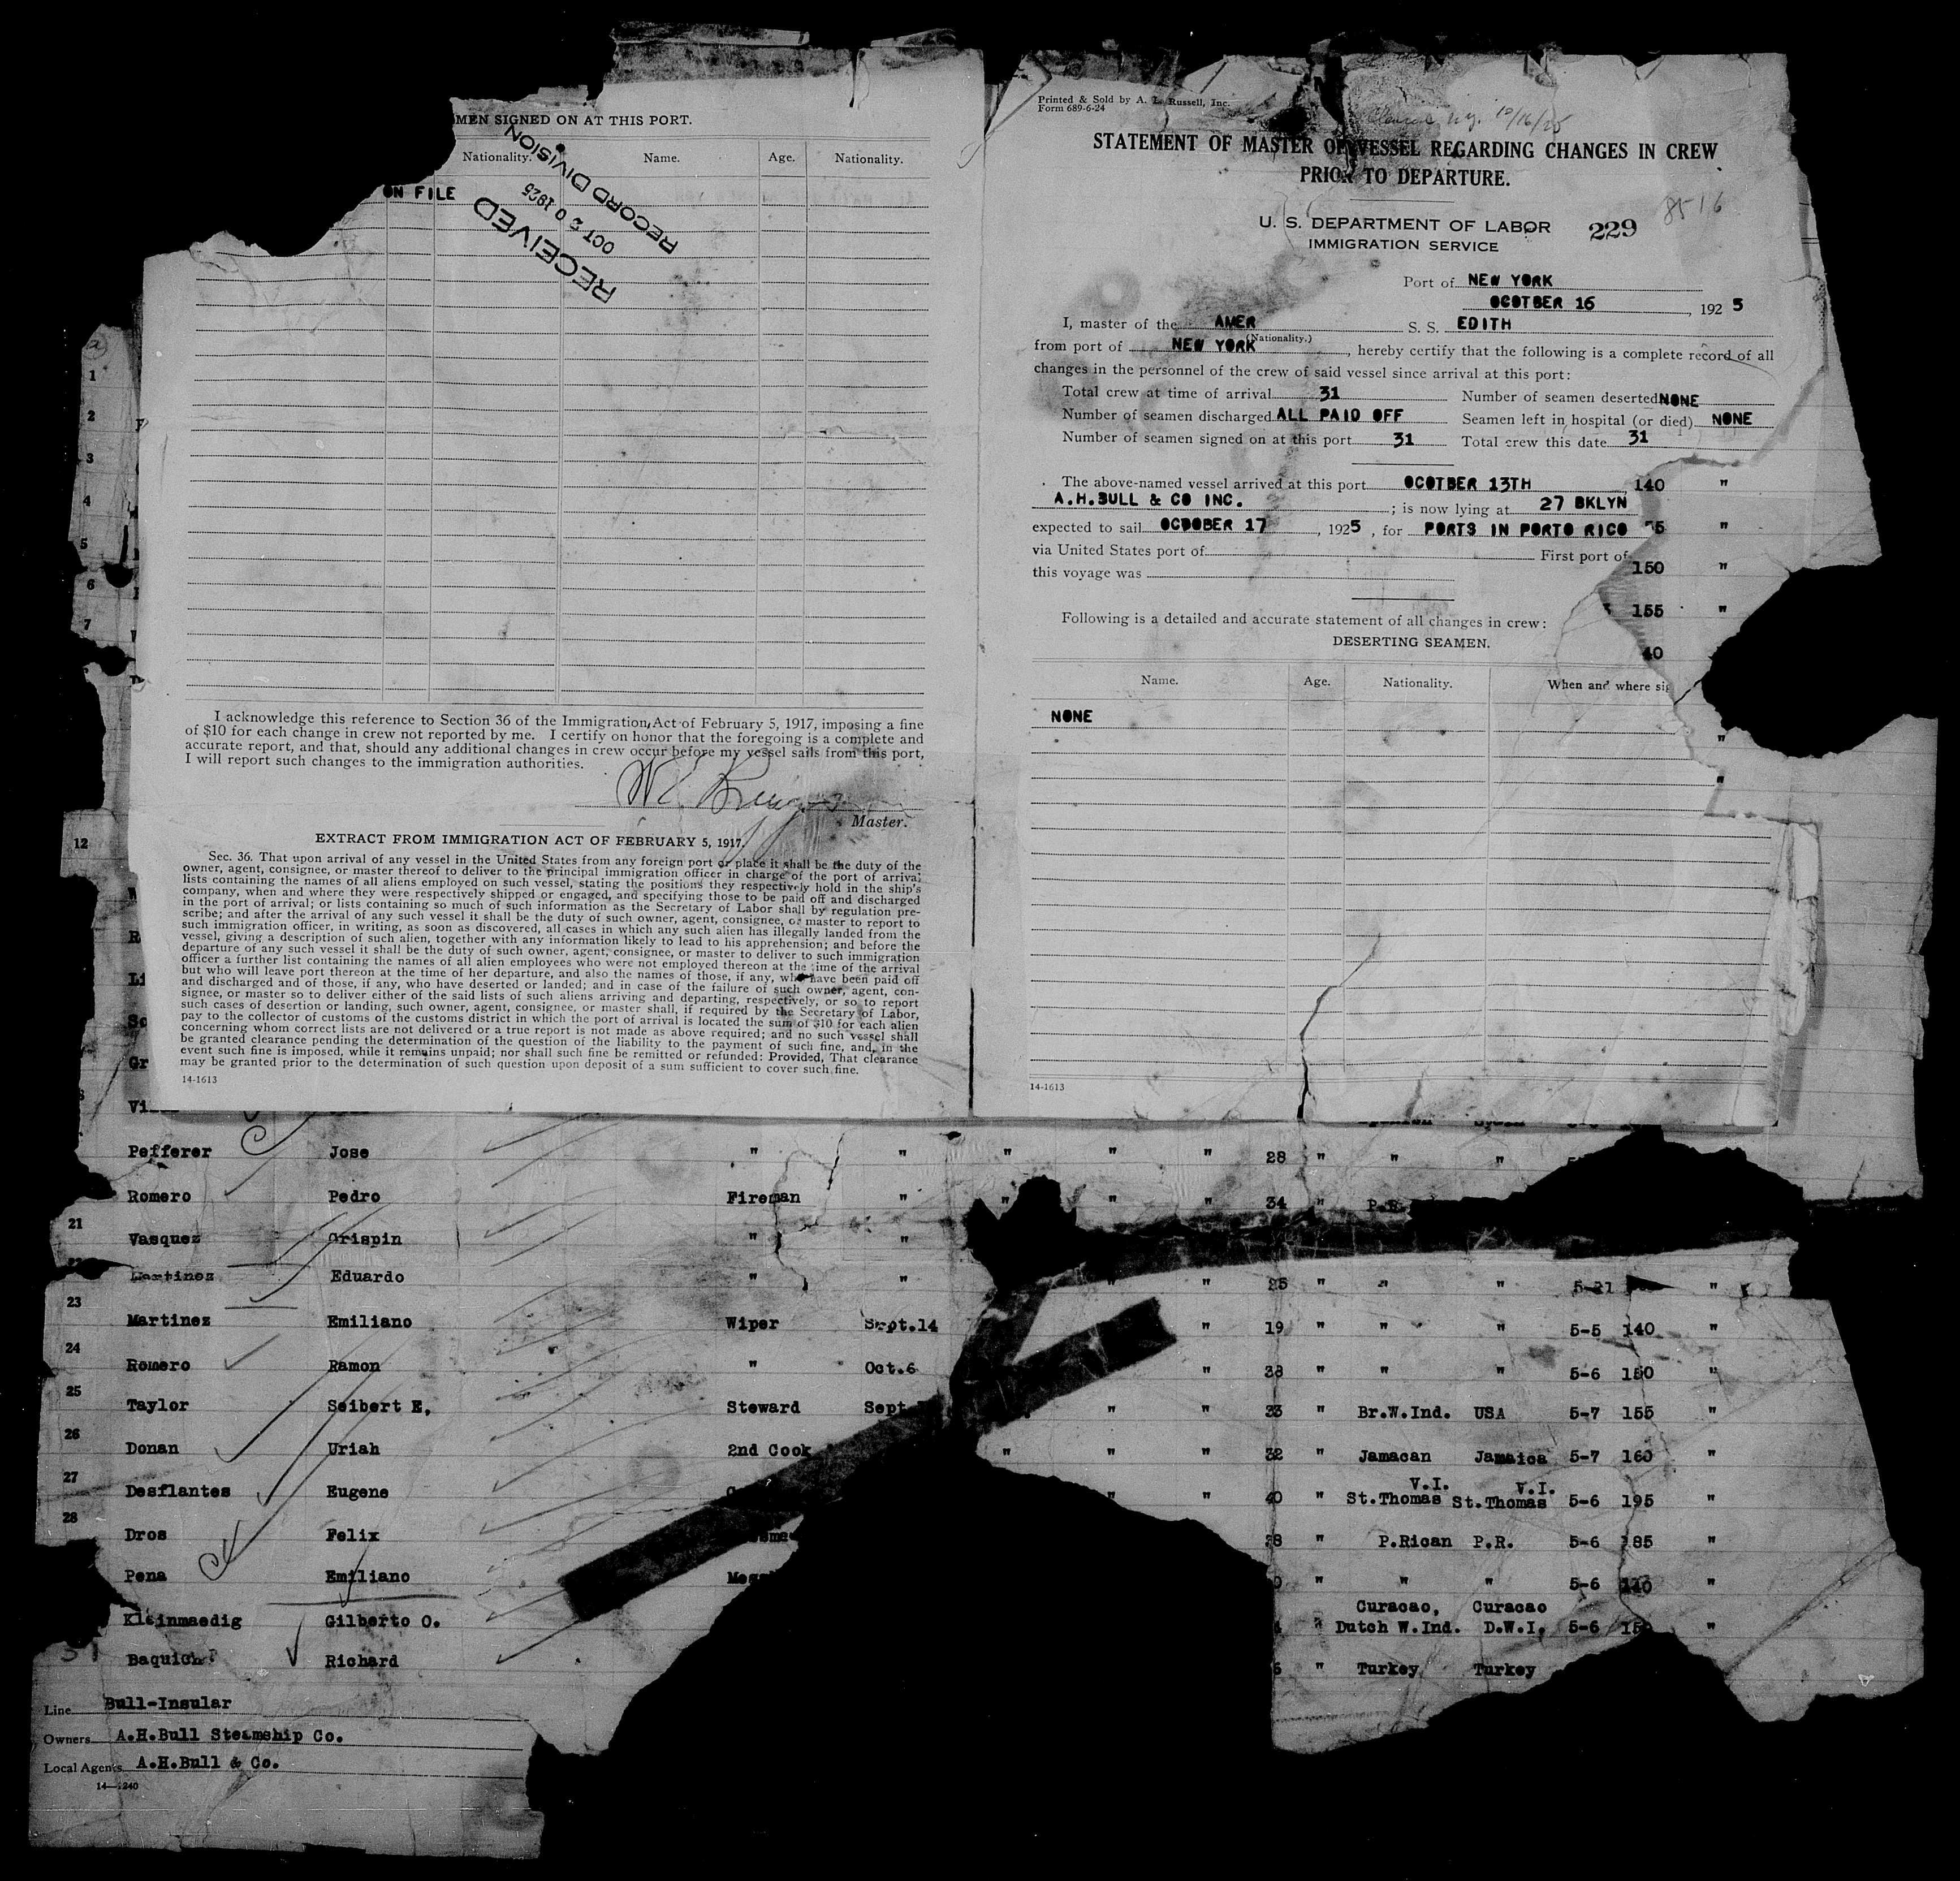 MEN SIGNED ON AT THIS PORT.
Nationality. Name. Age. Nationality.
ON FILE
RECEIVED
OCT 20 1925
RECORD DIVISION
I acknowledge this reference to Section 36 of the Immigration Act of February 5, 1917, imposing a fine
of $10 for each change in crew not reported by me. I certify on honor that the foregoing is a complete and
accurate report, and that, should any additional changes in crew occur before my vessel sails from this port,
I will report such changes to the immigration authorities.
Master.
EXTRACT FROM IMMIGRATION ACT OF FEBRUARY 5, 1917.
Sec. 36. That upon arrival of any vessel in the United States from any foreign port or place it shall be the duty of the
owner, agent, consignee, or master thereof to deliver to the principal immigration officer in charge of the port of arrival
lists containing the names of all aliens employed on such vessel, stating the positions they respectively hold in the ship's
company, when and where they were respectively shipped or engaged, and specifying those to be paid off and discharged
in the port of arrival; or lists containing so much of such information as the Secretary of Labor shall by regulation pre-
scribe; and after the arrival of any such vessel it shall be the duty of such owner, agent, consignee, or master to report to
such immigration officer, in writing, as soon as discovered, all cases in which any such alien has illegally landed from the
vessel, giving a description of such alien, together with any information likely to lead to his apprehension; and before the
departure of any such vessel it shall be the duty of such owner, agent, consignee, or master to deliver to such immigration
officer a further list containing the names of all alien employees who were not employed thereon at the time of the arrival
but who will leave port thereon at the time of her departure, and also the names of those, if any, who have been paid off
and discharged and of those, if any, who have deserted or landed; and in case of the failure of such owner, agent, con-
signee, or master so to deliver either of the said lists of such aliens arriving and departing, respectively, or so to report
such cases of desertion or landing, such owner, agent, consignee, or master shall, if required by the Secretary of Labor,
pay to the collector of customs of the customs district in which the port of arrival is located the sum of $10 for each alien
concerning whom correct lists are not delivered or a true report is not made as above required; and no such vessel shall
be granted clearance pending the determination of the question of the liability to the payment of such fine, and, in the
event such fine is imposed, while it remains unpaid; nor shall such fine be remitted or refunded: Provided, That clearance
may be granted prior to the determination of such question upon deposit of a sum sufficient to cover such fine.
14-1613
Printed & Sold by A. L. Russell, Inc.
Form 689-6-24
10/16/25
STATEMENT OF MASTER OF VESSEL REGARDING CHANGES IN CREW
PRIOR TO DEPARTURE.
8516
U. S. DEPARTMENT OF LABOR 229
IMMIGRATION SERVICE
Port of NEW YORK
OCOTBER 16, 1925
I, master of the AMER S. S. EDITH
(Nationality.)
from port of NEW YORK, hereby certify that the following is a complete record of all
changes in the personnel of the crew of said vessel since arrival at this port:
Total crew at time of arrival 31 Number of seamen deserted NONE
Number of seamen discharged ALL PAID OFF Seamen left in hospital (or died) NONE
Number of seamen signed on at this port 31 Total crew this date 31
The above-named vessel arrived at this port OCOTBER 13TH 140 "
A.H.BULL & CO INC. ; is now lying at 27 BKLYN
expected to sail OCDOBER 17, 1925, for PORTS IN PORTO RICO "
via United States port of First port of
150 "
this voyage was
155 "
Following is a detailed and accurate statement of all changes in crew:
DESERTING SEAMEN.
40
Name. Age. Nationality. When and where sig
NONE
14-1613
1
2
3
4
5
6
7
12
Pefferer Jose " " " " " 28 " " "
Romero Pedro Fireman " " " " 34 " P.R.
21
Vasquez Crispin " "
Martinez Eduardo " " " " 25 " " " 5-21 "
23
Martinez Emiliano Wiper Sept.14 " 19 " " " 5-5 140 "
24
Romero Ramon " Oct.6 " 38 " " " 5-6 150 "
25
Taylor Seibert E. Steward Sept " " 33 " Br.W.Ind. USA 5-7 155 "
26
Donan Uriah 2nd Cook " " " 32 " Jamacan Jamaica 5-7 160 "
27
V.I. V.I.
Desflantes Eugene " " 40 " St.Thomas St.Thomas 5-6 195 "
28
Dros Felix 38 " P.Rican P.R. 5-6 185 "
Pena Emiliano Mess " " " 5-6 140 "
Curacao, Curacao
Kleinmaedig Gilberto O. " Dutch W.Ind. D.W.I. 5-6 "
31
Baquich Richard " Turkey Turkey
Line Bull-Insular
Owners A.H.Bull Steamship Co.
Local Agents A.H.Bull & Co.
14-1240